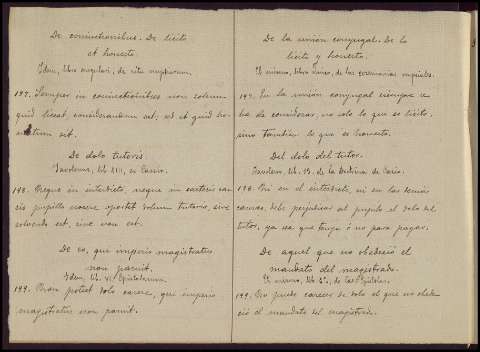 De coniunctionibus. De licito
et honesto.
Idem, libro singulari, de ritu nuptiarum.
197. Semper in coniunctionibus non solum
quid liceat considerandum est, sed et quid ho-
nestum sit.
De dolo tutoris
Javolenus, lib. XIII, ex Cassio.
198. Neque in interdicto, neque in caeteris cau-
sis pupillo nocere oportet dolum tutoris, sive
solvendo est, sive non est.
De eo, que imperio magistratus
non paruit.
Idem, lib. VI Epistolarum.
199. Non potest dolo carere, qui imperio
magistratus non paruit.
De la unión conyugal. De lo
lícito y honesto.
El mismo, libro único, de las ceremonias nupciales.
197. En la unión conyugal siempre se
ha de considerar, no solo lo que es lícito,
sino también lo que es honesto.
Del dolo del tutor.
Javoleno, lib. 13, de la Doctrina de Casio.
198. Ni en el interdicto, ni en las demás
causas, debe perjudicar al pupilo el dolo del
tutor, ya sea que tenga ó no para pagar.
De aquel que no obedeció el
mandato del magistrado.
El mismo, lib. 6º, de las Epístolas.
199. No puede carecer de dolo el que no obede-
ció el mandato del magistrado.